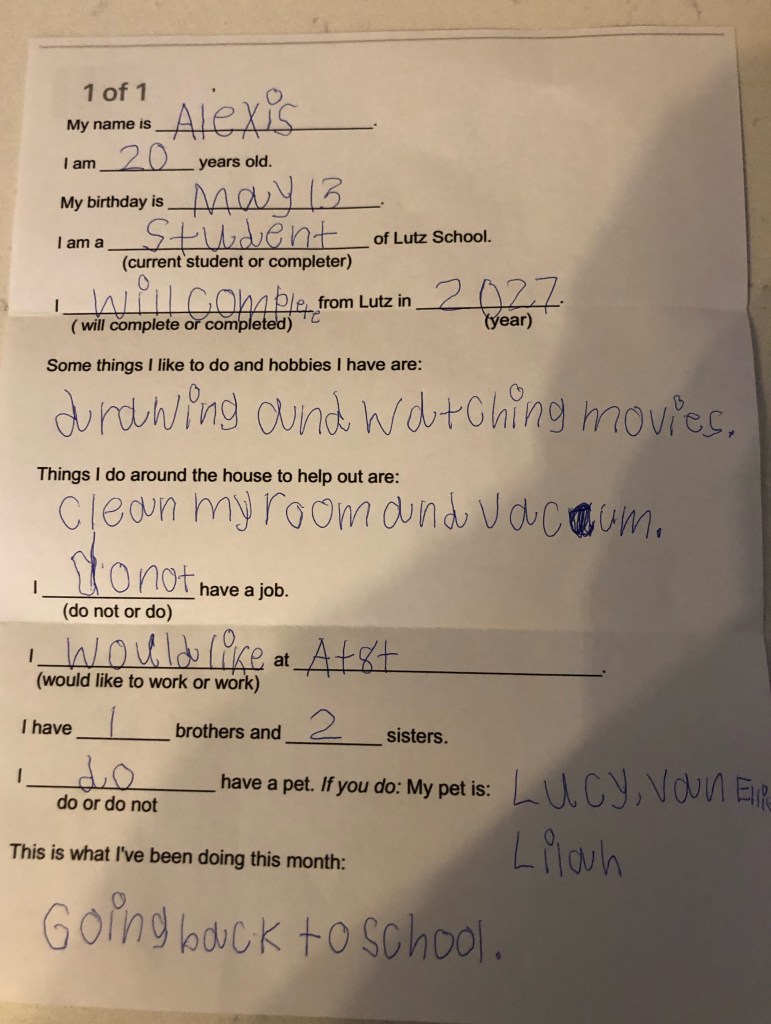 1 of 1
My name is Alexis.
I am 20 years old.
My birthday is May 13.
I am a Student of Lutz School.
(current student or completer)
I will complete from Lutz in 2027.
( will complete or completed) (year)
Some things I like to do and hobbies I have are:
drawing and watching movies.
Things I do around the house to help out are:
Clean my room and vacuum.
I do not have a job.
(do not or do)
I would like at At&t.
(would like to work or work)
I have 1 brothers and 2 sisters.
I do have a pet. If you do: My pet is: Lucy, Van
do or do not
Lilah
This is what I've been doing this month:
Going back to school.